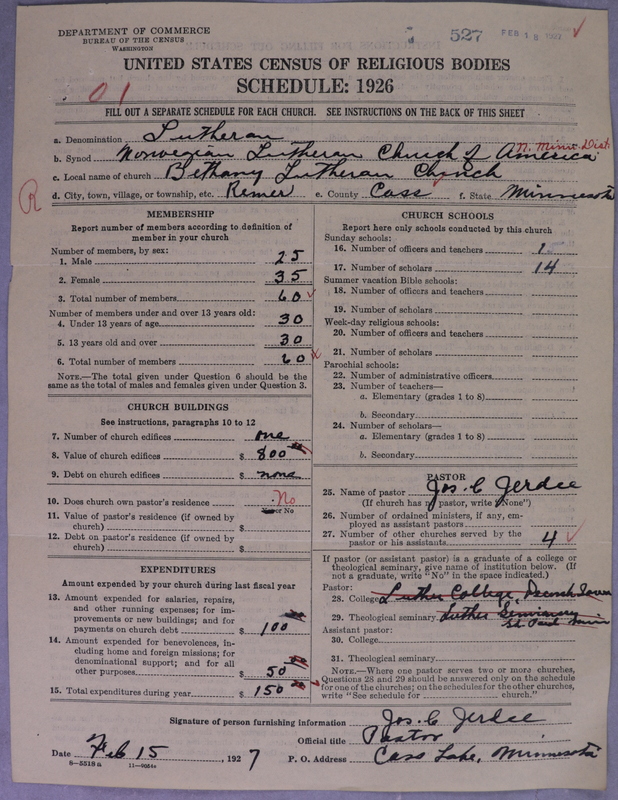 DEPARTMENT OF COMMERCE
BUREAU OF THE CENSUS
WASHINGTON
527 FEB 18 1927
UNITED STATES CENSUS OF RELIGIOUS BODIES
SCHEDULE: 1926
01
FILL OUT A SEPARATE SCHEDULE FOR EACH CHURCH. SEE INSTRUCTIONS ON THE BACK OF THIS SHEET
a. Denomination Lutheran
b. Synod Norwegian Lutheran Church of America N. Minn. Dist.
c. Local name of church Bethany Lutheran Church
d. City, town, village, or township, etc. Remer e. County Cass f. State Minnesota
R
MEMBERSHIP
Report number of members according to definition of member in your church
Number of members, by sex:
1. Male 25
2. Female 35
3. Total number of members 60
Number of members under and over 13 years old:
4. Under 13 years of age 30
5. 13 years old and over 30
6. Total number of members 60
NOTE.—The total given under Question 6 should be
same as the total of males and females given under Question 3.
CHURCH BUILDINGS
See instructions, paragraphs 10 to 12
7. Number of church edifices one
8. Value of church edifices $ 800
9. Debt on church edifices $ none
10. Does church own pastor's residence No
or No
11. Value of pastor's residence (if owned by
church) $
12. Debt on pastor's residence (if owned by
church) $
EXPENDITURES
Amount expended by your church during last fiscal year
13. Amount expended for salaries, repairs,
and other running expenses; for im-
provements or new buildings; and for
payments on church debt $ 100
14. Amount expended for benevolences, in-
cluding home and foreign missions; for
denominational support; and for all
other purposes $ 50
15. Total expenditures during year $ 150
CHURCH SCHOOLS
Report here only schools conducted by this church
Sunday schools:
16. Number of officers and teachers 1
17. Number of scholars 14
Summer vacation Bible schools:
18. Number of officers and teachers
19. Number of scholars
Week-day religious schools:
20. Number of officers and teachers
21. Number of scholars
Parochial schools:
22. Number of administrative officers
23. Number of teachers—
a. Elementary (grades 1 to 8)
b. Secondary
24. Number of scholars—
a. Elementary (grades 1 to 8)
b. Secondary
PASTOR
25. Name of pastor Jos. C Jerdee
(If church has no pastor, write "None")
26. Number of ordained ministers, if any, em-
ployed as assistant pastors
27. Number of other churches served by the
pastor or his assistants 4
If pastor (or assistant pastor) is a graduate of a college or
theological seminary, give name of institution below. (If
not a graduate, write "No" in the space indicated.)
Pastor:
28. College Luther College, Decorah Iowa
29. Theological seminary Luther Seminary
St. Paul Minn
Assistant pastor:
30. College
31. Theological seminary
NOTE.—Where one pastor serves two or more churches,
Questions 28 and 29 should be answered only on the schedule
for one of the churches; on the schedules for the other churches,
write "See schedule for church."
Signature of person furnishing information Jos. C Jerdee
Official title Pastor
Date Feb 15, 1927 P. O. Address Cass Lake, Minnesota
8-5518 a 11-9054